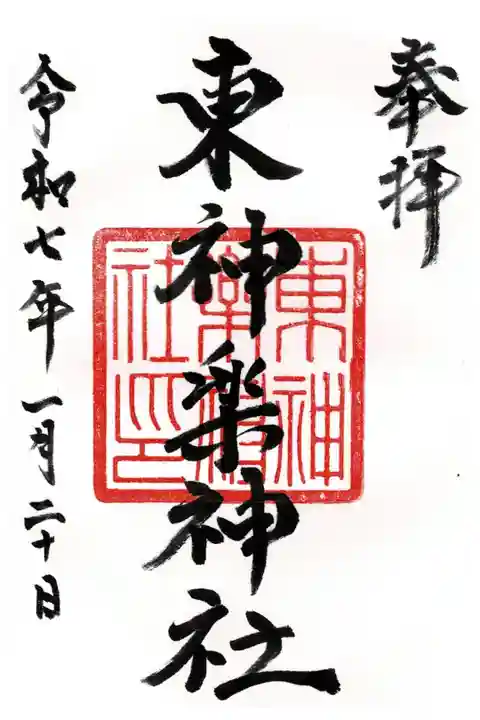 奉拝
東神楽神社
東神
楽神
社之印
令和七年一月二十日